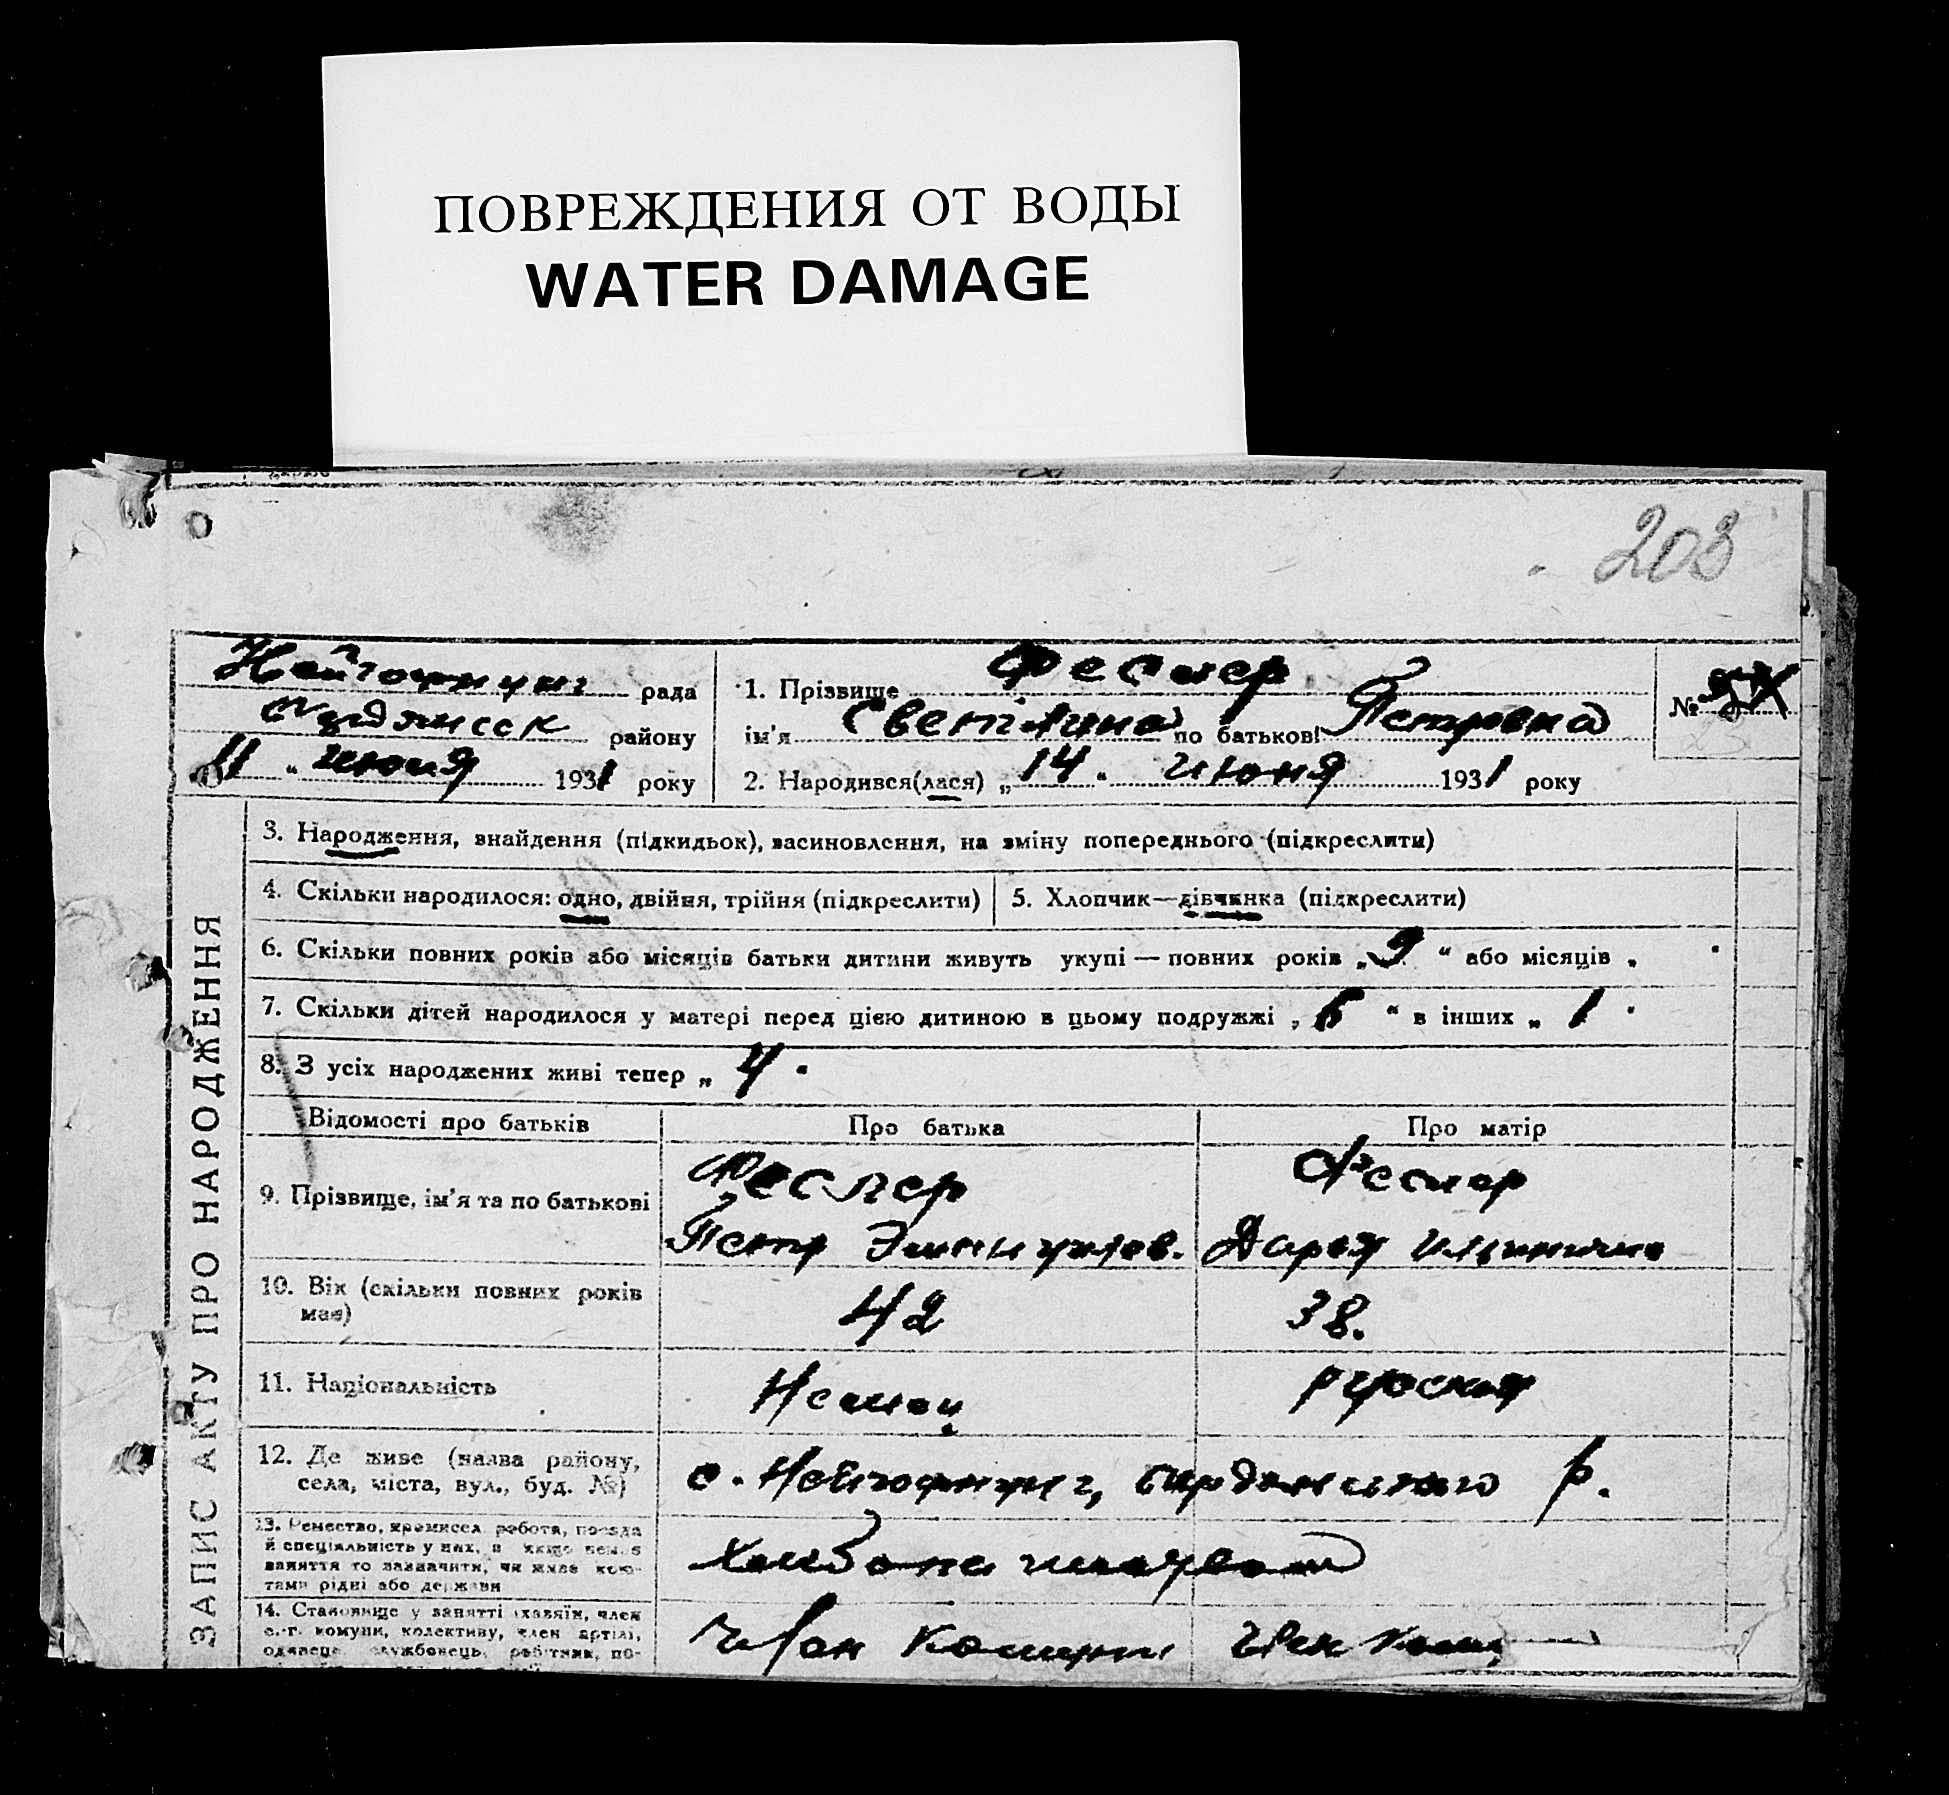 ПОВРЕЖДЕНИЯ ОТ ВОДЫ
WATER DAMAGE
203
Нейгофнунг рада
району
11 „ июля 1931 року
1. Прізвище Феслер
ім'я Светлина по батькові Петровна
2. Народився(лася) „ 14 „ июня 1931 року
№
ЗАПИС АКТУ ПРО НАРОДЖЕННЯ
3. Народження, знайдення (підкидьок), засиновлення, на зміну попереднього (підкреслити)
4. Скільки народилося: одно, двійня, трійня (підкреслити)
5. Хлопчик—дівчинка (підкреслити)
6. Скільки повних років або місяців батьки дитини живуть укупі — повних років „ 9 “ або місяців „
7. Скільки дітей народилося у матері перед цією дитиною в цьому подружжі „ 6 “ в інших „ 1 “
8. З усіх народжених живі тепер „ 4 “
Відомості про батьків Про батька Про матір
9. Прізвище, ім'я та по батькові
Феслер
Петр
Феслер
Дарья Ильинична
10. Вік (скільки повних років
має)
42
38.
11. Національність
Немец
русская
12. Де живе (назва району,
села, міста, вул., буд. №)
с. Нейгофнунг, бердянского р.
13. Ремество, промисел, робота, посада
й спеціяльність у них, а якщо немає
заняття то зазначити, чи живе кош-
тами рідні або держави
Хлебопашество
14. Становище у занятті (хазяїн, член
с.-г. комуни, колективу, член артілі,
одинець, службовець, робітник, по-
Член Комуны
Член Комун